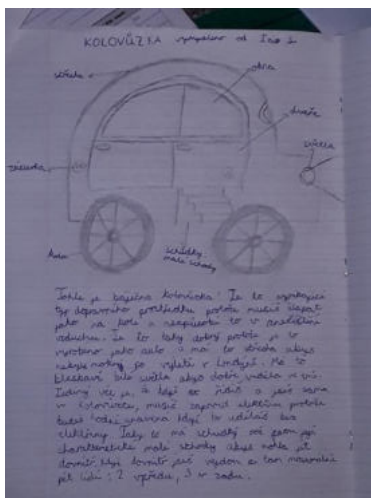 KOLOVŮZKA vymyšleno od Ines J.
střecha
okna
dveře
světla
zásuvka
kola
schůdky
malé schody
Tohle je báječná kolovůzka! Je to vynikající
typ dopravního prostředku protože musíš šlapat
jako na kole a nezpůsobí to znečištění
vzduchu. Je to taky dobrý protože je to
vyrobeno jako auto a má to střechu abys
nebyl mokrý po výletě v Londýně. Má to
bílé světla abys dobře viděla v noci.
Jediný věc je, že když to řídíš a jseš sama
v kolovůzce, musíš zapnout elektřinu protože
budeš hodně unavena když to uděláš bez
elektřiny. Taky to má schůdky což jsou
charakteristické malé schody abys mohla jít
dovnitř. Když dovnitř vejdou se tam maximálně
pět lidí: 2 vpředu, 3 vzadu.